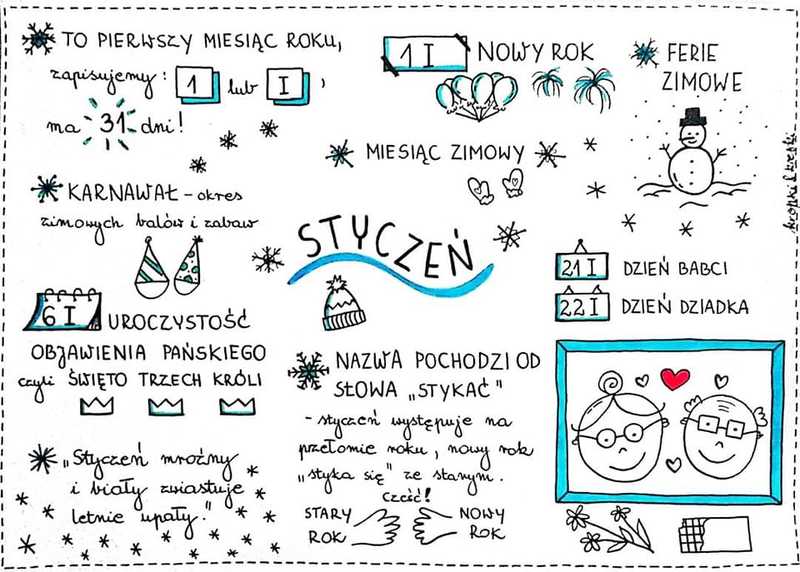 TO PIERWSZY MIESIĄC ROKU,
zapisujemy: 1 lub I,
ma 31 dni!
1 I NOWY ROK
FERIE
ZIMOWE
MIESIĄC ZIMOWY
KARNAWAŁ - okres
zimowych balów i zabaw
STYCZEŃ
21 I DZIEŃ BABCI
22 I DZIEŃ DZIADKA
6 I UROCZYSTOŚĆ
OBJAWIENIA PAŃSKIEGO
czyli ŚWIĘTO TRZECH KRÓLI
NAZWA POCHODZI OD
SŁOWA „STYKAĆ”
- styczeń występuje na
przełomie roku, nowy rok
„styka się” ze starym.
Cześć!
STARY
ROK
NOWY
ROK
„Styczeń mroźny
i biały zwiastuje
letnie upały.”
kropki i kreski